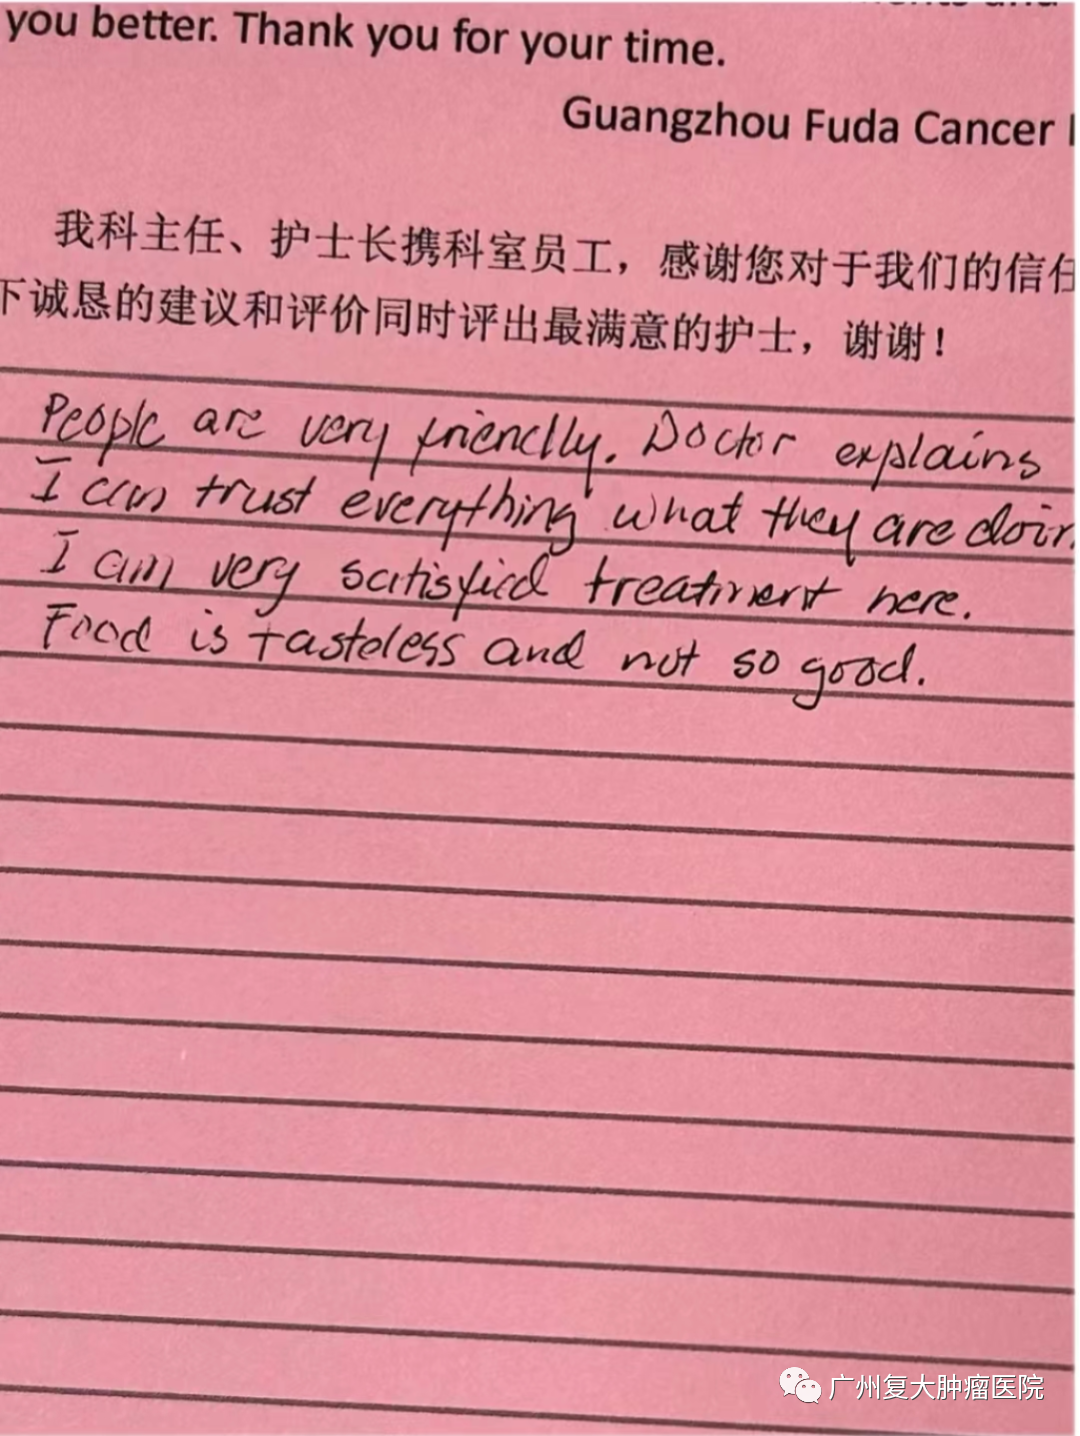 you better. Thank you for your time.
Guangzhou Fuda Cancer
我科主任、护士长携科室员工，感谢您对于我们的信任
下诚恳的建议和评价同时评出最满意的护士，谢谢！
People are very friendly. Doctor explains
I can trust everything what they are doin
I am very satisfied treatment here.
Food is tasteless and not so good.
广州复大肿瘤医院